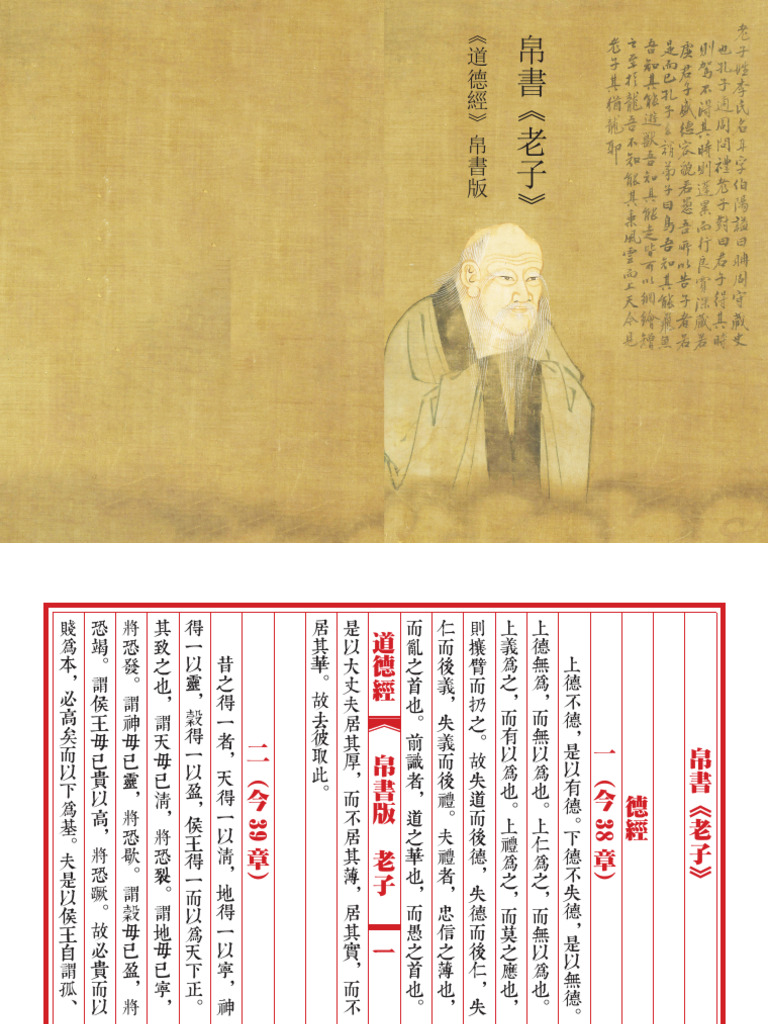 老子姓李氏名耳字伯陽諡曰聃周守藏史
也孔子適周問禮老子對曰君子得其時
則駕不得其時則蓬累而行良賈深藏若
虛君子盛德容貌若愚吾所以告子者若
是而已孔子去謂弟子曰鳥吾知其能飛魚
吾知其能遊獸吾知其能走皆可以網綸矰
之至於龍吾不知能其乘風雲而上天今見
老子其猶龍耶
帛書《老子》
《道德經》帛書版
帛書《老子》
德經
一（今38章）
上德不德，是以有德。下德不失德，是以無德。
上德無爲，而無以爲也。上仁爲之，而無以爲也。
上義爲之，而有以爲也。上禮爲之，而莫之應也，
則攘臂而扔之。故失道而後德，失德而後仁，失
仁而後義，失義而後禮。夫禮者，忠信之薄也，
而亂之首也。前識者，道之華也，而愚之首也。
道德經《帛書版 老子 一
是以大丈夫居其厚，而不居其薄，居其實，而不
居其華。故去彼取此。
二（今39章）
昔之得一者，天得一以清，地得一以寧，神
得一以靈，穀得一以盈，侯王得一而以爲天下正。
其致之也，謂天毋已清，將恐裂。謂地毋已寧，
將恐發。謂神毋已靈，將恐歇。謂穀毋已盈，將
恐竭。謂侯王毋已貴以高，將恐蹶。故必貴而以
賤爲本，必高矣而以下爲基。夫是以侯王自謂孤、